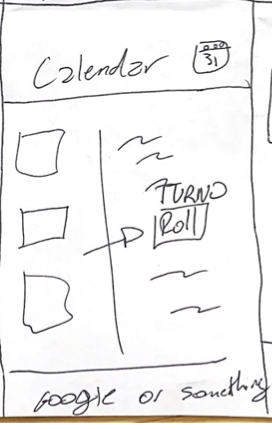 Calendar
31
TURNO
Roll
Google or something